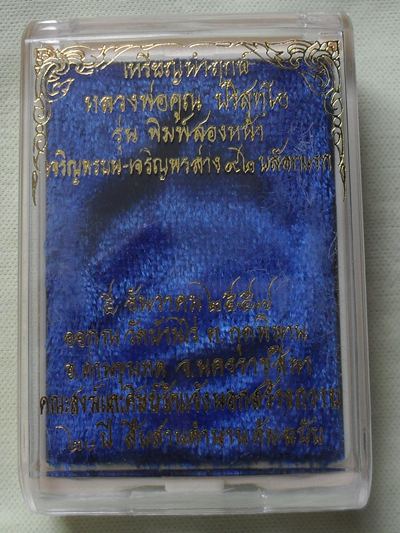 เหรียญนำฤกษ์
หลวงพ่อคูณ ปริสุทฺโธ
รุ่น พิมพ์สองหน้า
เจริญพรบน-เจริญพรล่าง ๙๒ บล๊อกแรก
๕ ธันวาคม ๒๕๕๗
ออก ณ วัดบ้านไร่ ต.กุดพิมาน
อ.ด่านขุนทด จ.นครราชสีมา
คณะสงฆ์และศิษย์วัดแจ้งนอก
ปี สืบสานตำนาน